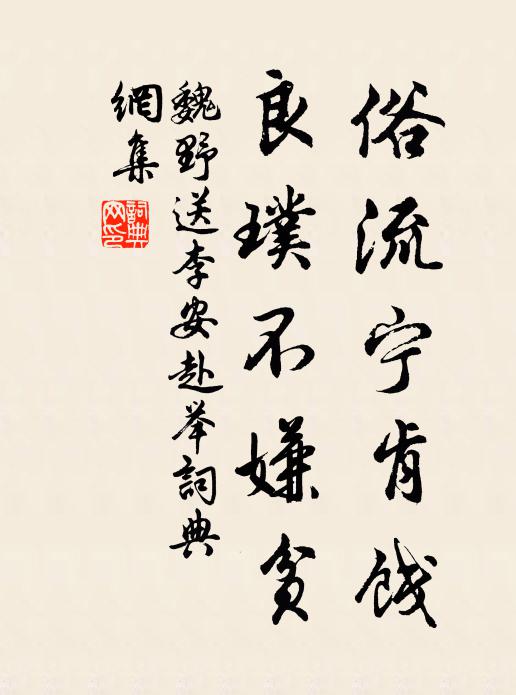 俗流宁肯饯
良璞不嫌贫
魏野送李安赴举詞典
網集
詞典網印